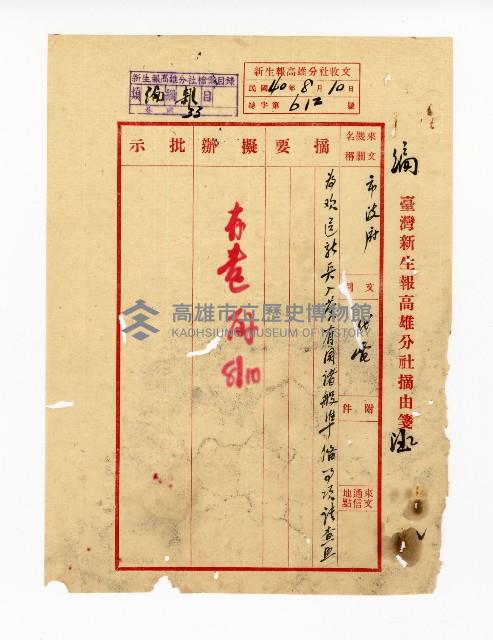 新生報高雄分社檔案目錄
類 編 綱 雜 目
新生報高雄分社收文
民國40年8月10日
錄字第612號
編
臺灣新生報高雄分社摘由箋
來文機關名稱
市政府
文別
代電
附件
來文通信地點
摘要
為欢送新兵入營有関諸般準俻事項請查照
擬辦
批示
存卷
8/10
高雄市立歷史博物館
KAOHSIUNG MUSEUM OF HISTORY